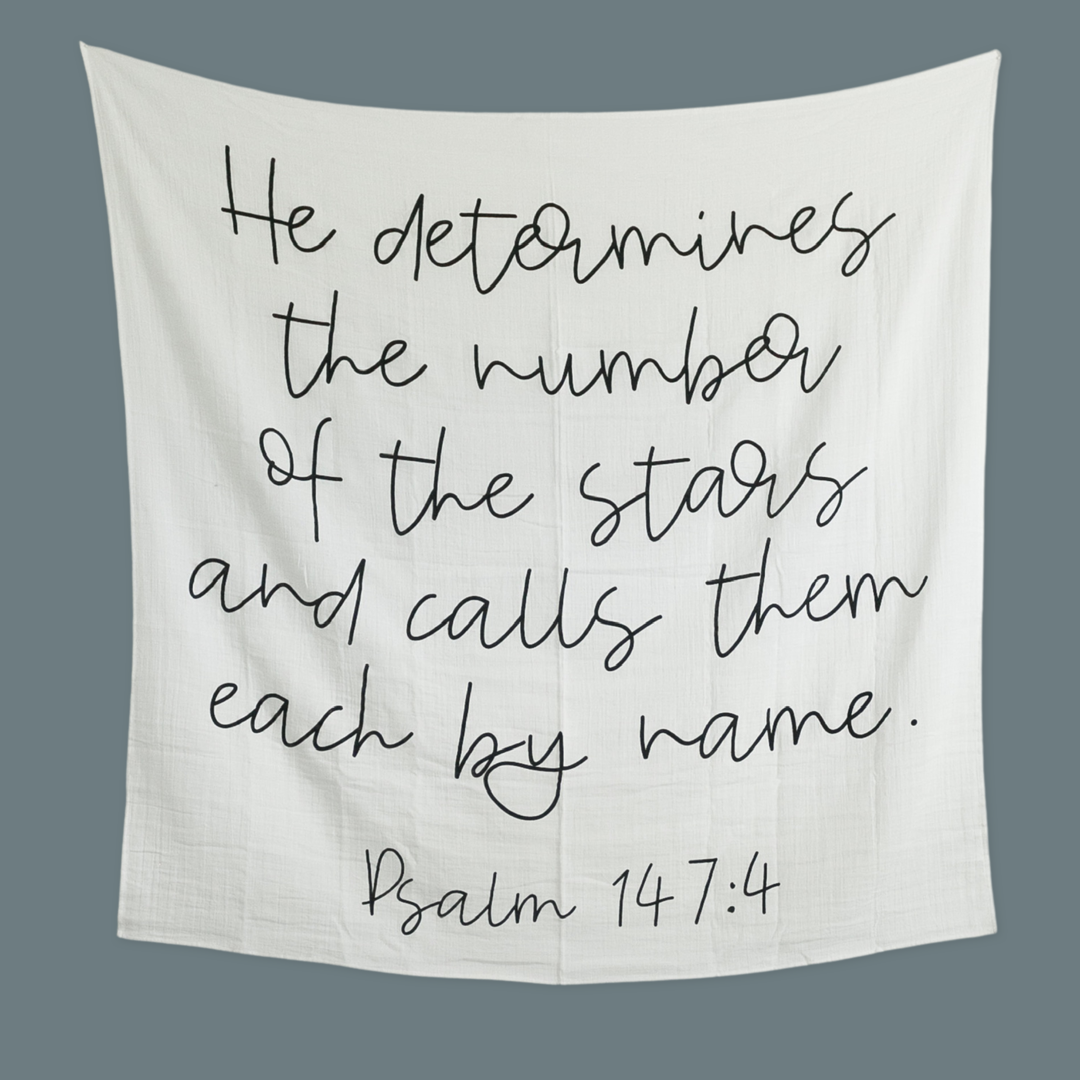 He determines
the number
of the stars
and calls them
each by name.
Psalm 147:4